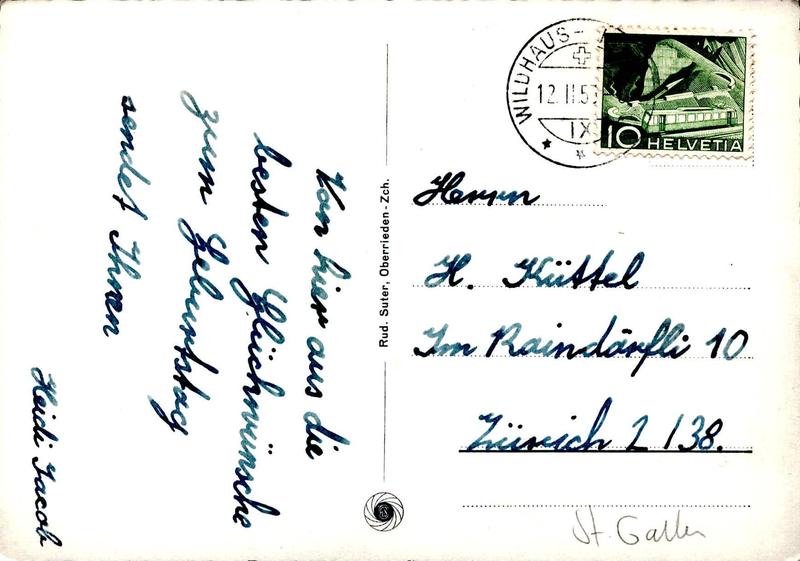 Von hier aus die
besten Glückwünsche
zum Geburtstag
sendet Ihnen
Heidi Jacob
Rud. Suter, Oberrieden-Zch.
WILDHAUS-
12.II.5
IX
10 HELVETIA
Herrn
H. Küttel
Im Raindörfli 10
Zürich 2/38.
St. Gallen